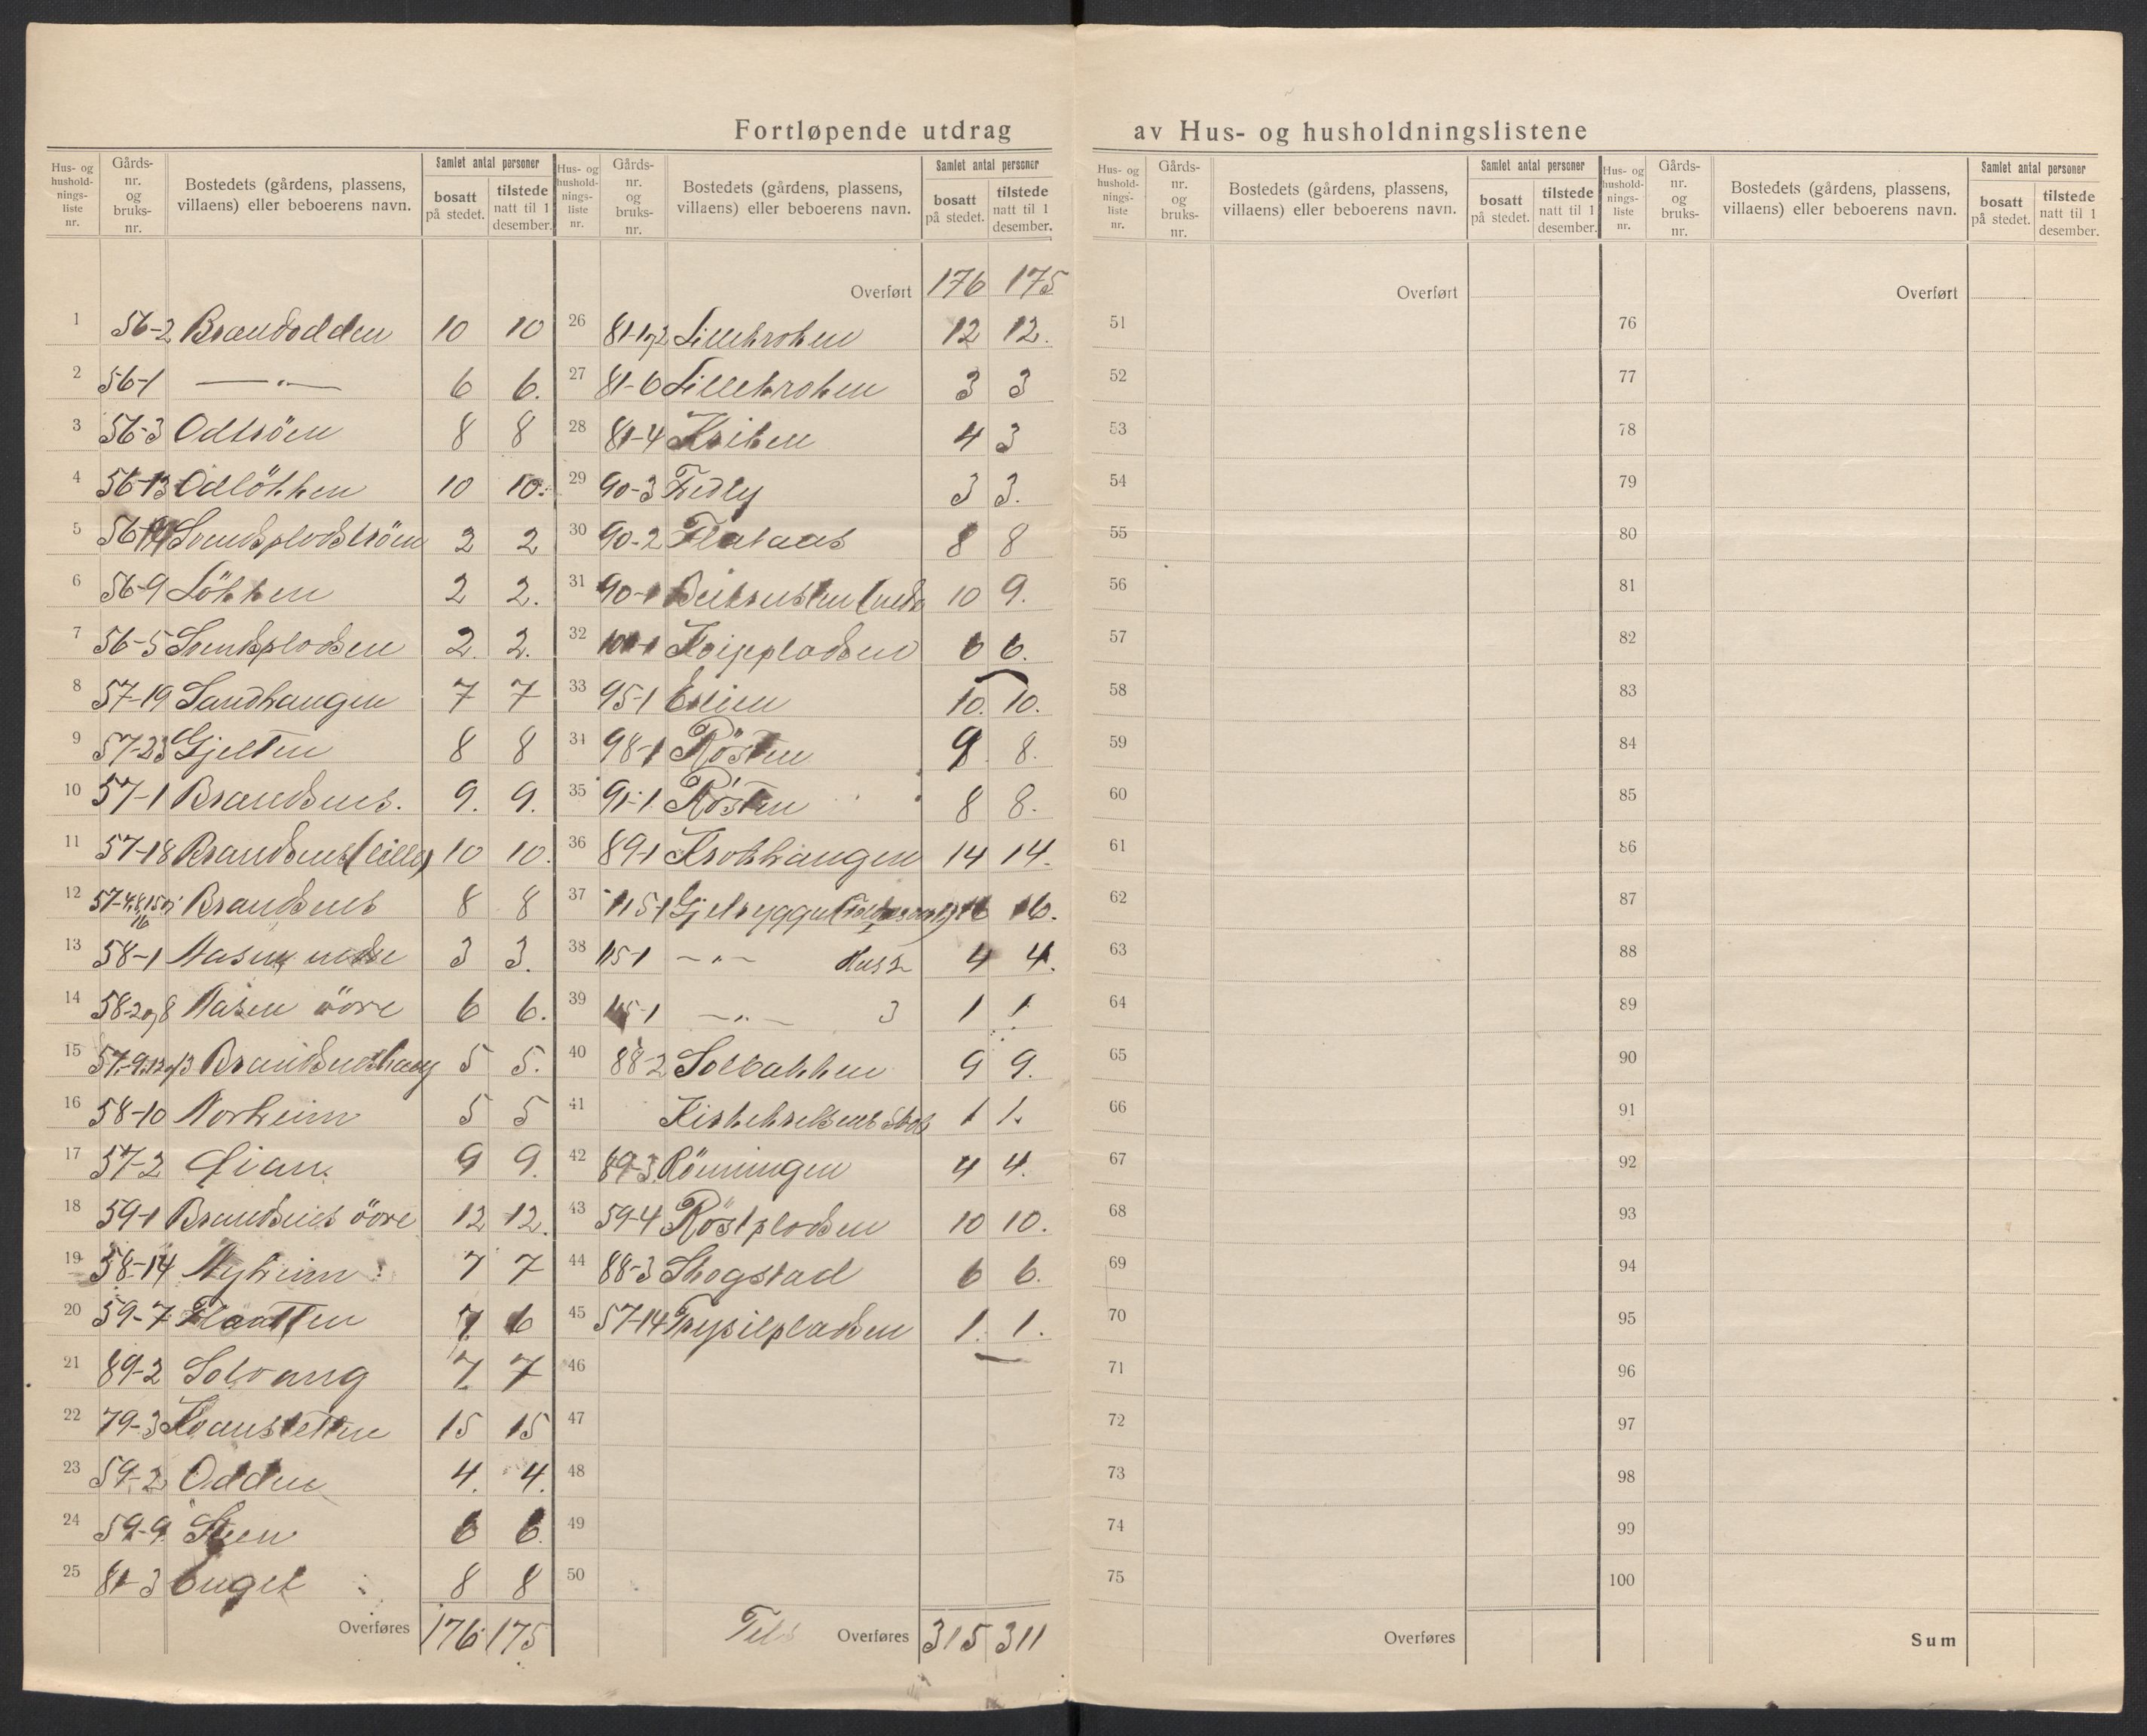 Fortløpende utdrag av Hus- og husholdningslistene
Hus- og husholdnings-liste nr. Gårds-nr. og bruks-nr. Bostedets (gårdens, plassens, villaens) eller beboerens navn. Samlet antal personer bosatt på stedet. tilstede natt til 1 desember.
1 56-2 Brandodden 10 10
2 56-1 —"— 6 6.
3 56-3 Odtröen 8 8
4 56-13 Odlökken 10 10.
5 56-14 2 2
6 56-9 Lökken 2 2.
7 56-5 Svendsplodsen 2. 2.
8 57-19 Sandhaugen 7 7
9 57-23 Gjelten 8 8
10 57-1 Brandsnes. 9. 9.
11 57-18 Brandsnes (lille) 10 10.
12 57-4,8,15 og 16 Brandsnes 8 8
13 58-1 Aasen nedre 3 3.
14 58-2 og 8 Aasen övre 6 6.
15 57-9,12 og 13 Brandsneshaug 5 5.
16 58-10 Norheim 5 5
17 57-2 Lian. 9 9.
18 59-1 Brandsnes övre 12 12.
19 58-14 Nyheim 7 7
20 59-7 Flaatten 7 6
21 89-2 Solvang 7 7
22 79-3 Kvansletten 15 15
23 59-2 Odden 4. 4.
24 59-9 Steen 6 6.
25 81-3 Enget 8 8
Overføres 176 175
Hus- og husholdnings-liste nr. Gårds-nr. og bruks-nr. Bostedets (gårdens, plassens, villaens) eller beboerens navn. Samlet antal personer bosatt på stedet. tilstede natt til 1 desember.
Overført 176 175
26 81-1 og 2 Lillekroken 12 12.
27 81-6 Lillekroken 3 3
28 81-4 Kriken 4 3
29 90-3 3 3.
30 90-2 Flataas 8 8
31 90-1 10 9.
32 Kvippladsen 6 6.
33 95-1 Enlien 10. 10.
34 98-1 Rösten 9 8.
35 91-1 Rösten 8 8.
36 89-1 Krokhaugen 14 14.
37 115-1 Gjelryggen 16 16.
38 115-1 —"— Hus 2 4 4.
39 115-1 —"— 3 1 1
40 88-2 Solbakken 9 9.
41 1 1.
42 89-3 Rönningen 4 4.
43 59-4 Röstplodsen 10 10.
44 88-3 Skogstad 6 6.
45 57-14 Trysilpladsen 1. 1.
46
47
48
49
50
Tils Overføres 315 311
Hus- og husholdnings-liste nr. Gårds-nr. og bruks-nr. Bostedets (gårdens, plassens, villaens) eller beboerens navn. Samlet antal personer bosatt på stedet. tilstede natt til 1 desember.
Overført
51
52
53
54
55
56
57
58
59
60
61
62
63
64
65
66
67
68
69
70
71
72
73
74
75
Overføres
Hus- og husholdnings-liste nr. Gårds-nr. og bruks-nr. Bostedets (gårdens, plassens, villaens) eller beboerens navn. Samlet antal personer bosatt på stedet. tilstede natt til 1 desember.
Overført
76
77
78
79
80
81
82
83
84
85
86
87
88
89
90
91
92
93
94
95
96
97
98
99
100
Sum